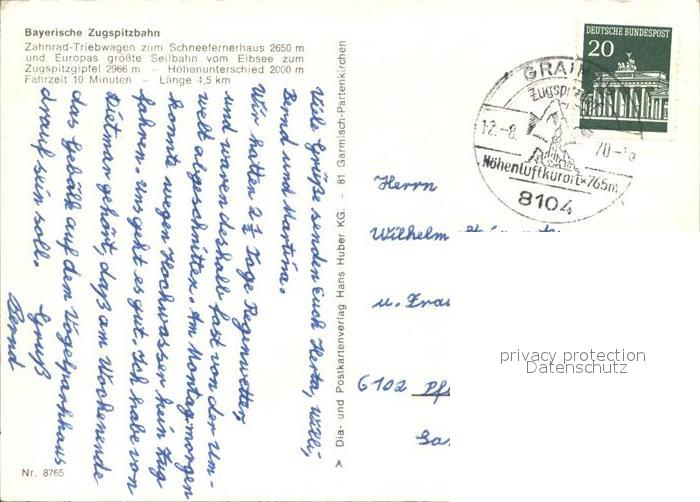 Bayerische Zugspitzbahn
Zahnrad-Triebwagen zum Schneefernerhaus 2650 m
und Europas größte Seilbahn vom Eibsee zum
Zugspitzgipfel 2966 m - Höhenunterschied 2000 m
Fahrzeit 10 Minuten - Länge 4,5 km
Viele Grüße senden Euch Herta, Willi,
Bernd und Martina.
Wir hatten 2 ½ Tage Regenwetter,
und waren deshalb fast von der Um-
welt abgeschnitten. Am Montagmorgen
konnte wegen Hochwasser kein Zug
fahren. Uns geht es gut. Ich habe von
Dietmar gehört, daß am Wochenende
das Gebälk auf dem Vogelparkhaus
drauf sein soll.
Gruß
Bernd
Nr. 8765
Dia- und Postkartenverlag Hans Huber KG. - 81 Garmisch-Partenkirchen
DEUTSCHE BUNDESPOST
20
GRAINAU
Zugspitz
12.-8. 70-18
Höhenluftkurort × 765m
8104
Herrn
Wilhelm
u. Frau
6102 Pf
privacy protection
Datenschutz